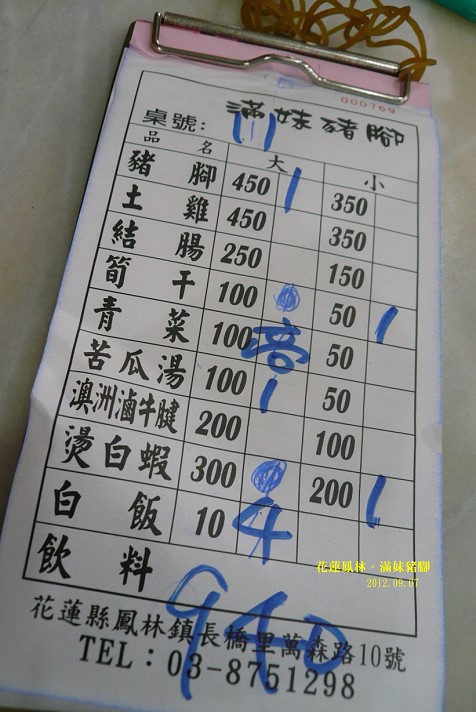 000769
滿妹豬腳
桌號: 11
品名 大 小
豬腳 450 1 350
土雞 450 350
結腸 250 150
筍干 100 50 1
青菜 100 高 50
苦瓜湯 100 1 50
澳洲滷牛腱 200 100
燙白蝦 300 200 1
白飯 10 4
飲料
940
花蓮縣鳳林鎮長橋里萬森路10號
TEL：03-8751298
花蓮鳳林。滿妹豬腳
2012.09.07